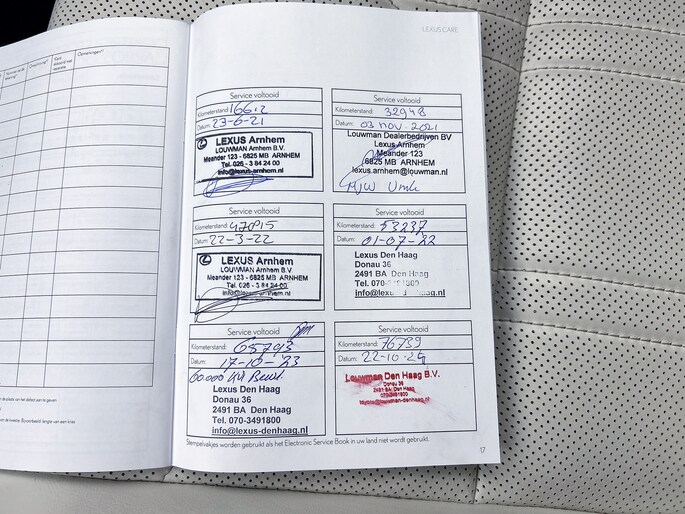 LEXUS CARE
Opmerkingen
Service voltooid
Kilometerstand: 16612
Datum: 23-6-21
LEXUS Arnhem
LOUWMAN Arnhem B.V.
Meander 123 - 6825 MB ARNHEM
Tel. 026 - 3 84 24 00
info@lexus-arnhem.nl
Service voltooid
Kilometerstand: 32948
Datum: 03 nov 2021
Louwman Dealerbedrijven BV
Lexus Arnhem
Meander 123
6825 MB ARNHEM
lexus.arnhem@louwman.nl
Service voltooid
Kilometerstand: 47015
Datum: 22-3-22
LEXUS Arnhem
LOUWMAN Arnhem B.V.
Meander 123 - 6825 MB ARNHEM
Tel. 026 - 3 84 24 00
info@lexus-arnhem.nl
Service voltooid
Kilometerstand: 53237
Datum: 01-07-22
Lexus Den Haag
Donau 36
2491 BA Den Haag
Tel. 070-3491800
info@lexus-denhaag.nl
Service voltooid
Kilometerstand:
Datum: 17-10-'23
60.000 KM Beurt
Lexus Den Haag
Donau 36
2491 BA Den Haag
Tel. 070-3491800
info@lexus-denhaag.nl
Service voltooid
Kilometerstand: 76739
Datum: 22-10-24
Louwman Den Haag B.V.
Donau 36
2491 BA Den Haag
070-3491800
Stempelvakjes worden gebruikt als het Electronic Service Book in uw land niet wordt gebruikt.
17